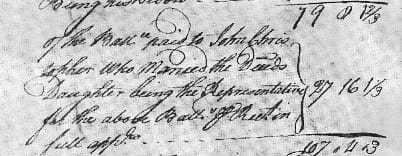 79 8 1⅔
of the Ball.ce paid to John Chris,
topher who Marreed the Deeds
Daughter being the Representative 27 16 1⅓
for the above Ball.ce & Rect in
full app.ds
107 4 3